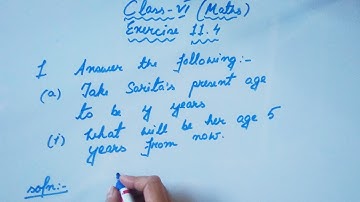 Class-VI (Maths)
Exercise 11.4
1 Answer the following:-
(a) Take Sarita's present age
to be y years
(i) What will be her age 5
years from now.
soln:-